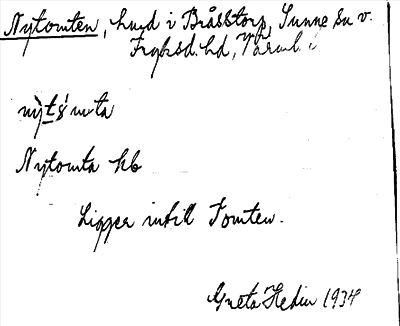 Nytomten, hmd i Bråsstorp, Sunne sn v.
Fryksd. hd, Värml.
Nytomta kb
Ligger intill Tomten.
Greta Hedin 1934